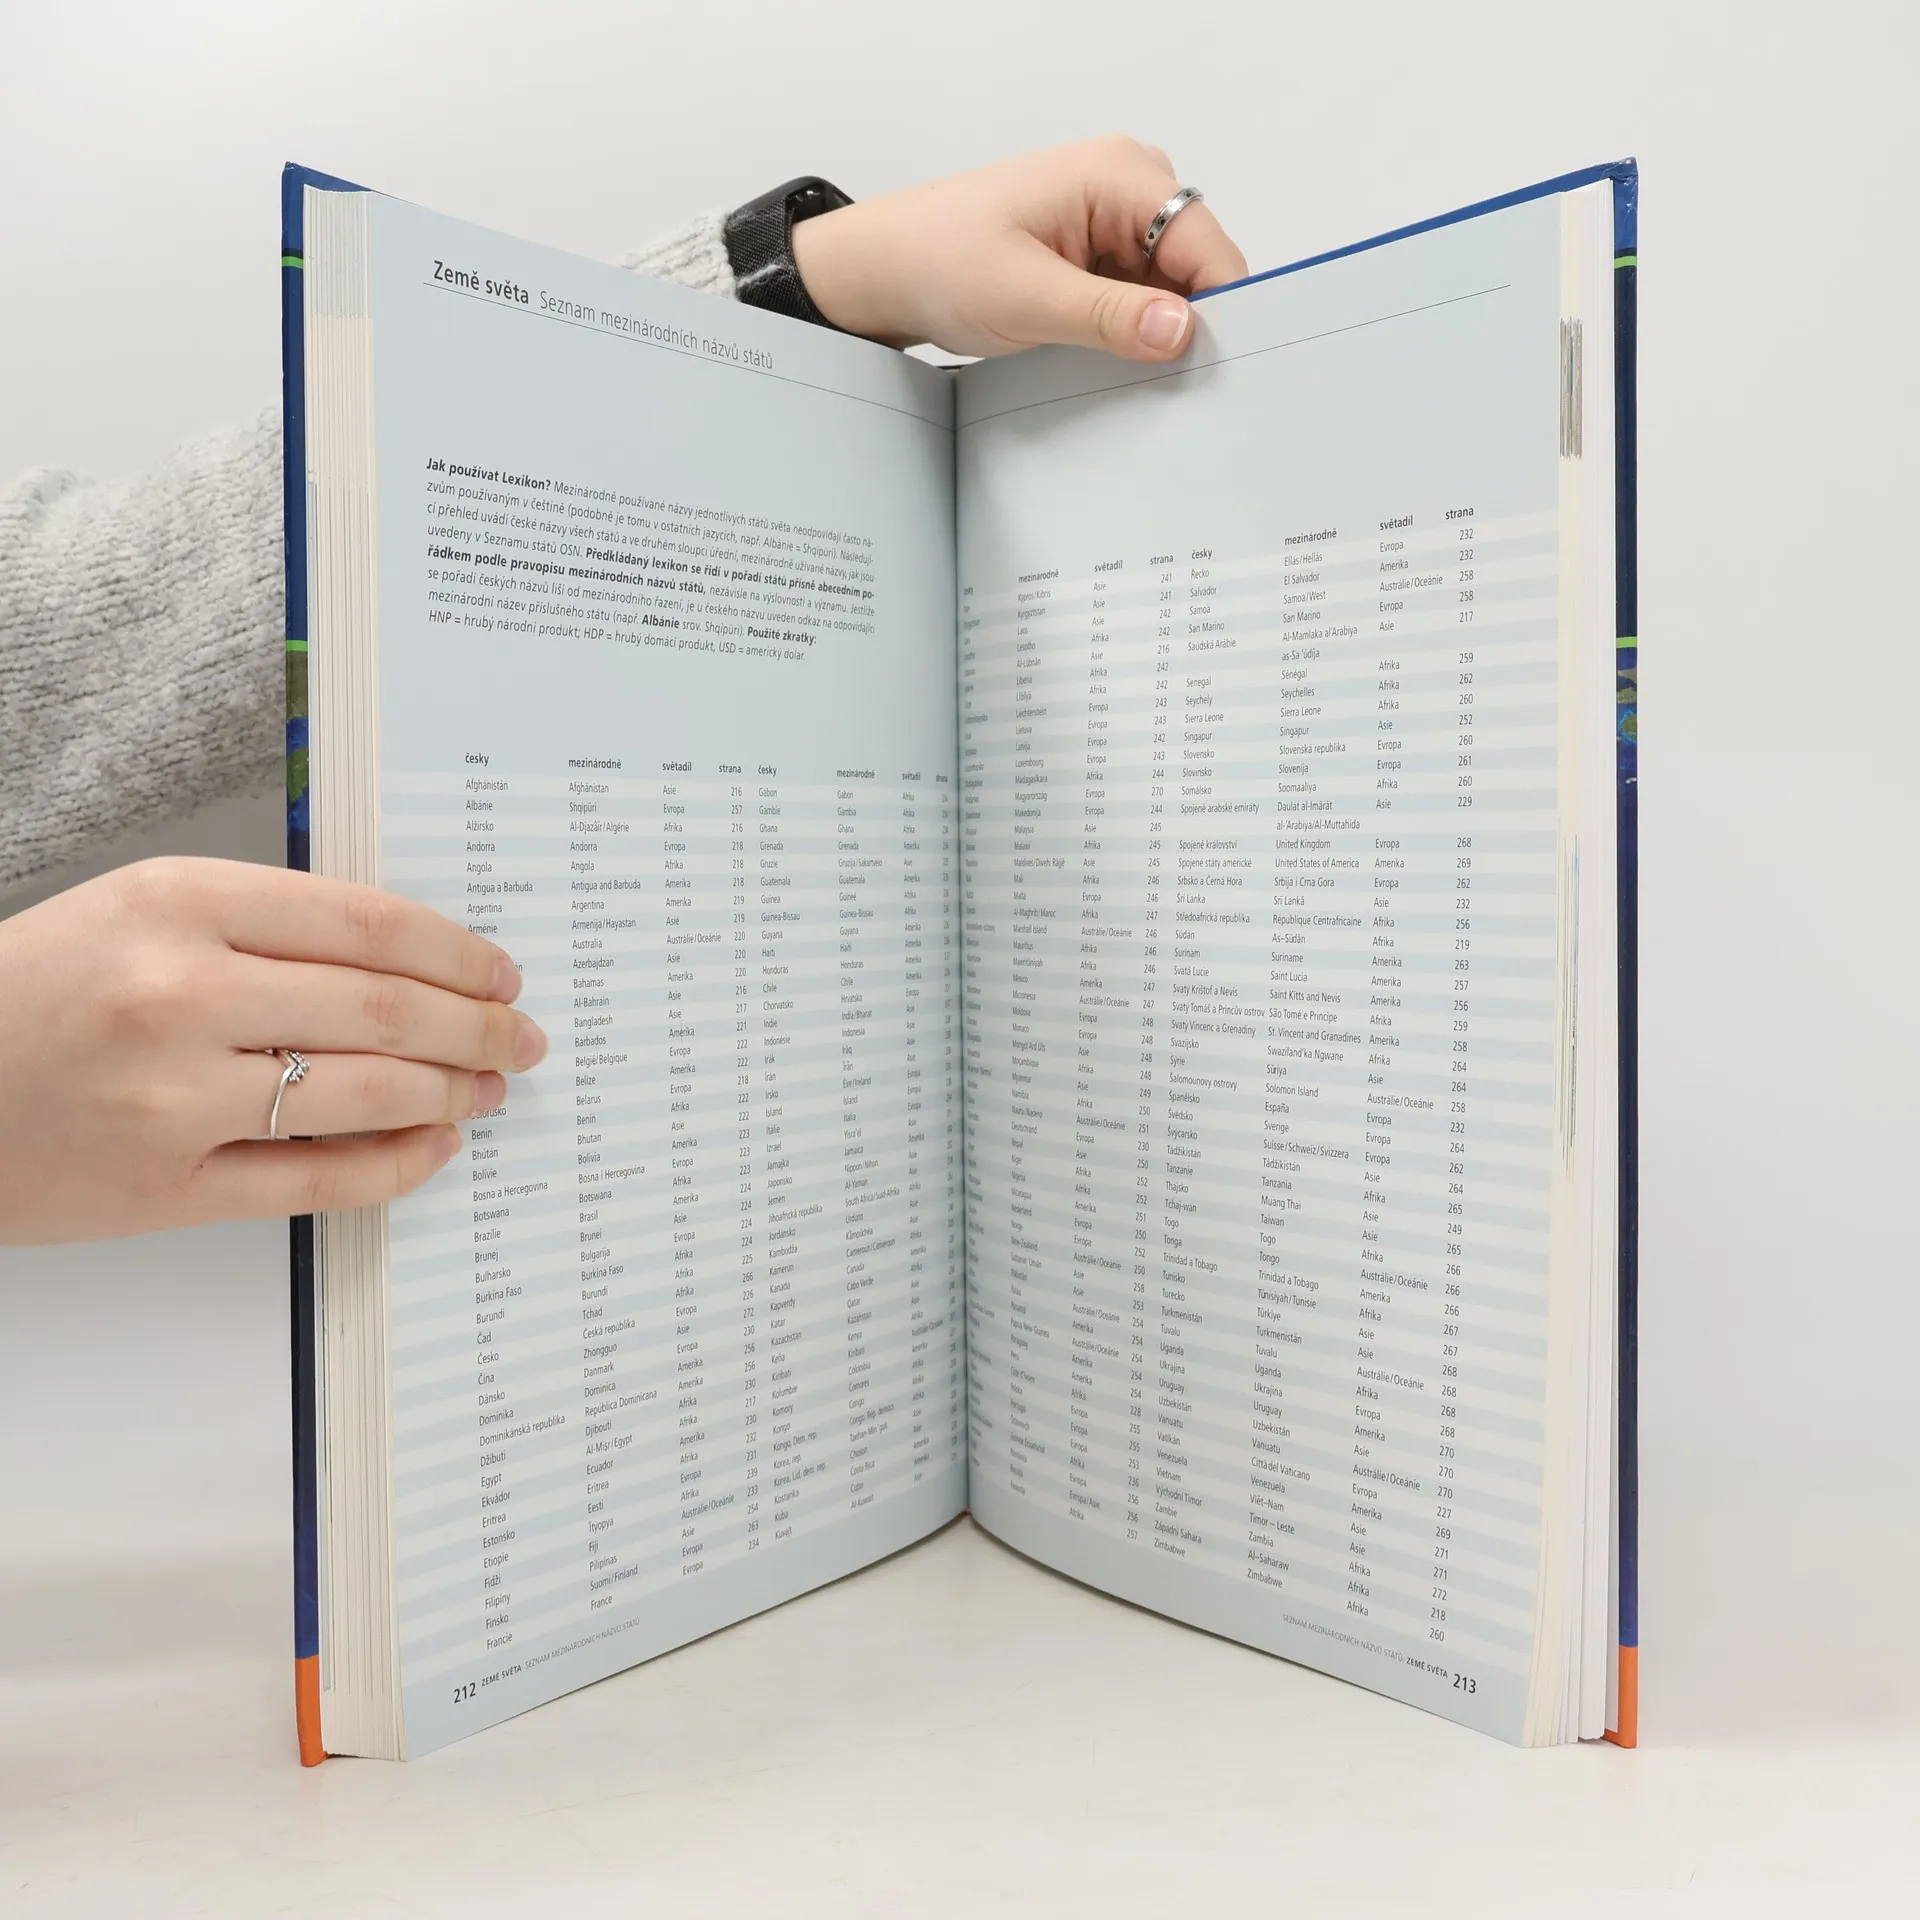 Země světa Seznam mezinárodních názvů států
Jak používat Lexikon? Mezinárodně používané názvy jednotlivých států světa neodpovídají často ná-
zvům používaným v češtině (podobně je tomu v ostatních jazycích, např. Albánie = Shqipüri). Následují-
cí přehled uvádí české názvy všech států a ve druhém sloupci úřední, mezinárodně užívané názvy, jak jsou
uvedeny v Seznamu států OSN. Předkládaný lexikon se řídí v pořadí států přísně abecedním po-
řádkem podle pravopisu mezinárodních názvů států, nezávisle na výslovnosti a významu. Jestliže
se pořadí českých názvů liší od mezinárodního řazení, je u českého názvu uveden odkaz na odpovídající
mezinárodní název příslušného státu (např. Albánie srov. Shqipüri). Použité zkratky:
HNP = hrubý národní produkt; HDP = hrubý domácí produkt, USD = americký dolar.
česky mezinárodně světadíl strana
Afghánistán Afghánistan Asie 216
Albánie Shqipüri Evropa 257
Alžírsko Al-Djazâir/Algérie Afrika 216
Andorra Andorra Evropa 218
Angola Angola Afrika 218
Antigua a Barbuda Antigua and Barbuda Amerika 218
Argentina Argentina Amerika 219
Arménie Armenija/Hayastan Asie 219
Australia Austrálie/Oceánie 220
Azerbajdzan Asie 220
Bahamas Amerika 220
Al-Bahrain Asie 216
Bangladesh Asie 217
Barbados Amerika 221
België/Belgique Evropa 222
Belize Amerika 222
Belarus Evropa 218
Benin Benin Afrika 222
Bhútán Bhutan Asie 222
Bolívie Bolivia Amerika 223
Bosna a Hercegovina Bosna i Hercegovina Evropa 223
Botswana Botswana Afrika 223
Brazílie Brasil Amerika 224
Brunej Brunei Asie 224
Bulharsko Bulgarija Evropa 224
Burkina Faso Burkina Faso Afrika 225
Burundi Burundi Afrika
Čad Tchad Afrika
Česko Česká republika Evropa
Čína Zhongguo Asie
Dánsko Danmark Evropa
Dominika Dominica Amerika
Dominikánská republika República Dominicana Amerika
Džibuti Djibouti Afrika
Egypt Al-Misr/Egypt Afrika
Ekvádor Ecuador Amerika
Eritrea Eritrea Afrika
Estonsko Eesti Evropa
Etiopie Ityopya Afrika
Fidži Fiji Austrálie/Oceánie
Filipíny Pilipinas Asie
Finsko Suomi/Finland Evropa
Francie France Evropa
česky mezinárodně světadíl strana
Gabon Gabon Afrika
Gambie Gambia Afrika
Ghana Ghana Afrika
Grenada Grenada Amerika
Gruzie Gruzija/Sakartvelo Asie
Guatemala Guatemala Amerika
Guinea Guinee Afrika
Guinea-Bissau Guinea-Bissau Afrika
Guyana Guyana Amerika
Haiti Haiti Amerika
Honduras Honduras Amerika
Chile Chile Amerika
Chorvatsko Hrvatska Evropa
Indie India/Bharat Asie
Indonésie Indonesia Asie
Irák Iraq Asie
Írán Írán Asie
Irsko Eire/Ireland Evropa
Island Island Evropa
Itálie Italia Evropa
Izrael Yisra'el Asie
Jamajka Jamaica Amerika
Japonsko Nippon/Nihon Asie
Jemen Al-Yaman Asie
Jihoafrická republika South Africa/Suid-Afrika Afrika
Jordánsko Urdunn Asie
Kambodža Kâmpŭchéa Asie
Kamerun Cameroun/Cameroon Afrika
Kanada Canada Amerika
Kapverdy Cabo Verde Afrika
Katar Qatar Asie
Kazachstán Kazahstan Asie
Keňa Kenya Afrika
Kiribati Kiribati Austrálie/Oceánie
Kolumbie Colombia Amerika
Komory Comores Afrika
Kongo Congo Afrika
Kongo, Dem. rep. Congo, Rép. démocr. Afrika
Korea, rep. Taehan-Min 'guk Asie
Korea, Lid. dem. rep. Choson Asie
Kostarika Costa Rica Amerika
Kuba Cuba Amerika
Kuvajt Al-Kuwait Asie
212 ZEMĚ SVĚTA SEZNAM MEZINÁRODNÍCH NÁZVŮ STÁTŮ
česky mezinárodně světadíl strana
Kypros/Kibris Asie 241
Kyrgyzstan Asie 241
Laos Asie 242
Lesotho Afrika 242
Al-Lubnán Asie 216
Liberia Afrika 242
Libîyâ Afrika 242
Liechtenstein Evropa 243
Lietuva Evropa 243
Latvija Evropa 242
Luxembourg Evropa 243
Madagasikara Afrika 244
Magyarország Evropa 270
Makedonija Evropa 244
Malaysia Asie 245
Malawi Afrika 245
Maldives/Divehi Rājjē Asie 245
Mali Afrika 246
Malta Evropa 246
Al-Maghrib/Maroc Afrika 247
Marshall Island Austrálie/Oceánie 246
Mauritius Afrika 246
Mawrītāniyah Afrika 246
México Amerika 247
Micronesia Austrálie/Oceánie 247
Moldova Evropa 248
Monaco Evropa 248
Mongol Ard Uls Asie 248
Moçambique Afrika 248
Myanmar Asie 249
Namibia Afrika 250
Nauru/Naoero Austrálie/Oceánie 251
Deutschland Evropa 230
Nepal Asie 250
Niger Afrika 252
Nigeria Afrika 252
Nicaragua Amerika 251
Nederland Evropa 250
Norge Evropa 252
New Zealand Austrálie/Oceánie 250
Saltanat 'Umān Asie 258
Pákistán Asie 253
Palau Austrálie/Oceánie 254
Panamá Amerika 254
Papua New-Guinea Austrálie/Oceánie 254
Paraguay Amerika 254
Peru Amerika 254
Côte d'Ivoire Afrika 228
Polska Evropa 255
Portugal Evropa 255
Österreich Evropa 253
Guinea Ecuatorial Afrika 236
Romania Evropa 256
Rossija Evropa/Asie 256
Rwanda Afrika 257
česky mezinárodně světadíl strana
Řecko Ellás/Hellás Evropa 232
Salvador El Salvador Amerika 232
Samoa Samoa/West Austrálie/Oceánie 258
San Marino San Marino Evropa 258
Saúdská Arábie Al-Mamlaka al'Arabiya Asie 217
as-Sa 'údíja
Senegal Sénégal Afrika 259
Seychely Seychelles Afrika 262
Sierra Leone Sierra Leone Afrika 260
Singapur Singapur Asie 252
Slovensko Slovenská republika Evropa 260
Slovinsko Slovenija Evropa 261
Somálsko Soomaaliya Afrika 260
Spojené arabské emiráty Daulat al-Imárát Asie 229
al-'Arabiya/Al-Muttahida
Spojené království United Kingdom Evropa 268
Spojené státy americké United States of America Amerika 269
Srbsko a Černá Hora Srbija i Crna Gora Evropa 262
Srí Lanka Srí Lanká Asie 232
Středoafrická republika République Centrafricaine Afrika 256
Súdán As–Súdán Afrika 219
Surinam Suriname Amerika 263
Svatá Lucie Saint Lucia Amerika 257
Svatý Krištof a Nevis Saint Kitts and Nevis Amerika 256
Svatý Tomáš a Princův ostrov São Tomé e Principe Afrika 259
Svatý Vincenc a Grenadiny St. Vincent and Granadines Amerika 258
Svazijsko Swaziland'ka Ngwane Afrika 264
Sýrie Súriya Asie 264
Šalomounovy ostrovy Solomon Island Austrálie/Oceánie 258
Španělsko España Evropa 232
Švédsko Sverige Evropa 264
Švýcarsko Suisse/Schweiz/Svizzera Evropa 262
Tádžikistán Tádžikistán Asie 264
Tanzanie Tanzania Afrika 265
Thajsko Muang Thai Asie 249
Tchaj-wan Taiwan Asie 265
Togo Togo Afrika 266
Tonga Tongo Austrálie/Oceánie 266
Trinidad a Tobago Trinidad a Tobago Amerika 266
Tunisko Túnisiyah/Tunisie Afrika 267
Turecko Türkiye Asie 267
Turkmenistán Turkmenistán Asie 268
Tuvalu Tuvalu Austrálie/Oceánie 268
Uganda Uganda Afrika 268
Ukrajina Ukrajina Evropa 268
Uruguay Uruguay Amerika 270
Uzbekistán Uzbekistán Asie 270
Vanuatu Vanuatu Austrálie/Oceánie 270
Vatikán Città del Vaticano Evropa 227
Venezuela Venezuela Amerika 269
Vietnam Viêt–Nam Asie 271
Východní Timor Timor – Leste Asie 271
Zambie Zambia Afrika 272
Západní Sahara Al–Saharaw Afrika 218
Zimbabwe Zimbabwe Afrika 260
SEZNAM MEZINÁRODNÍCH NÁZVŮ STÁTŮ ZEMĚ SVĚTA 213